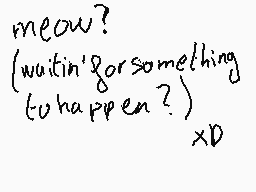 meow?
(waitin' for something
to happen?)
xD